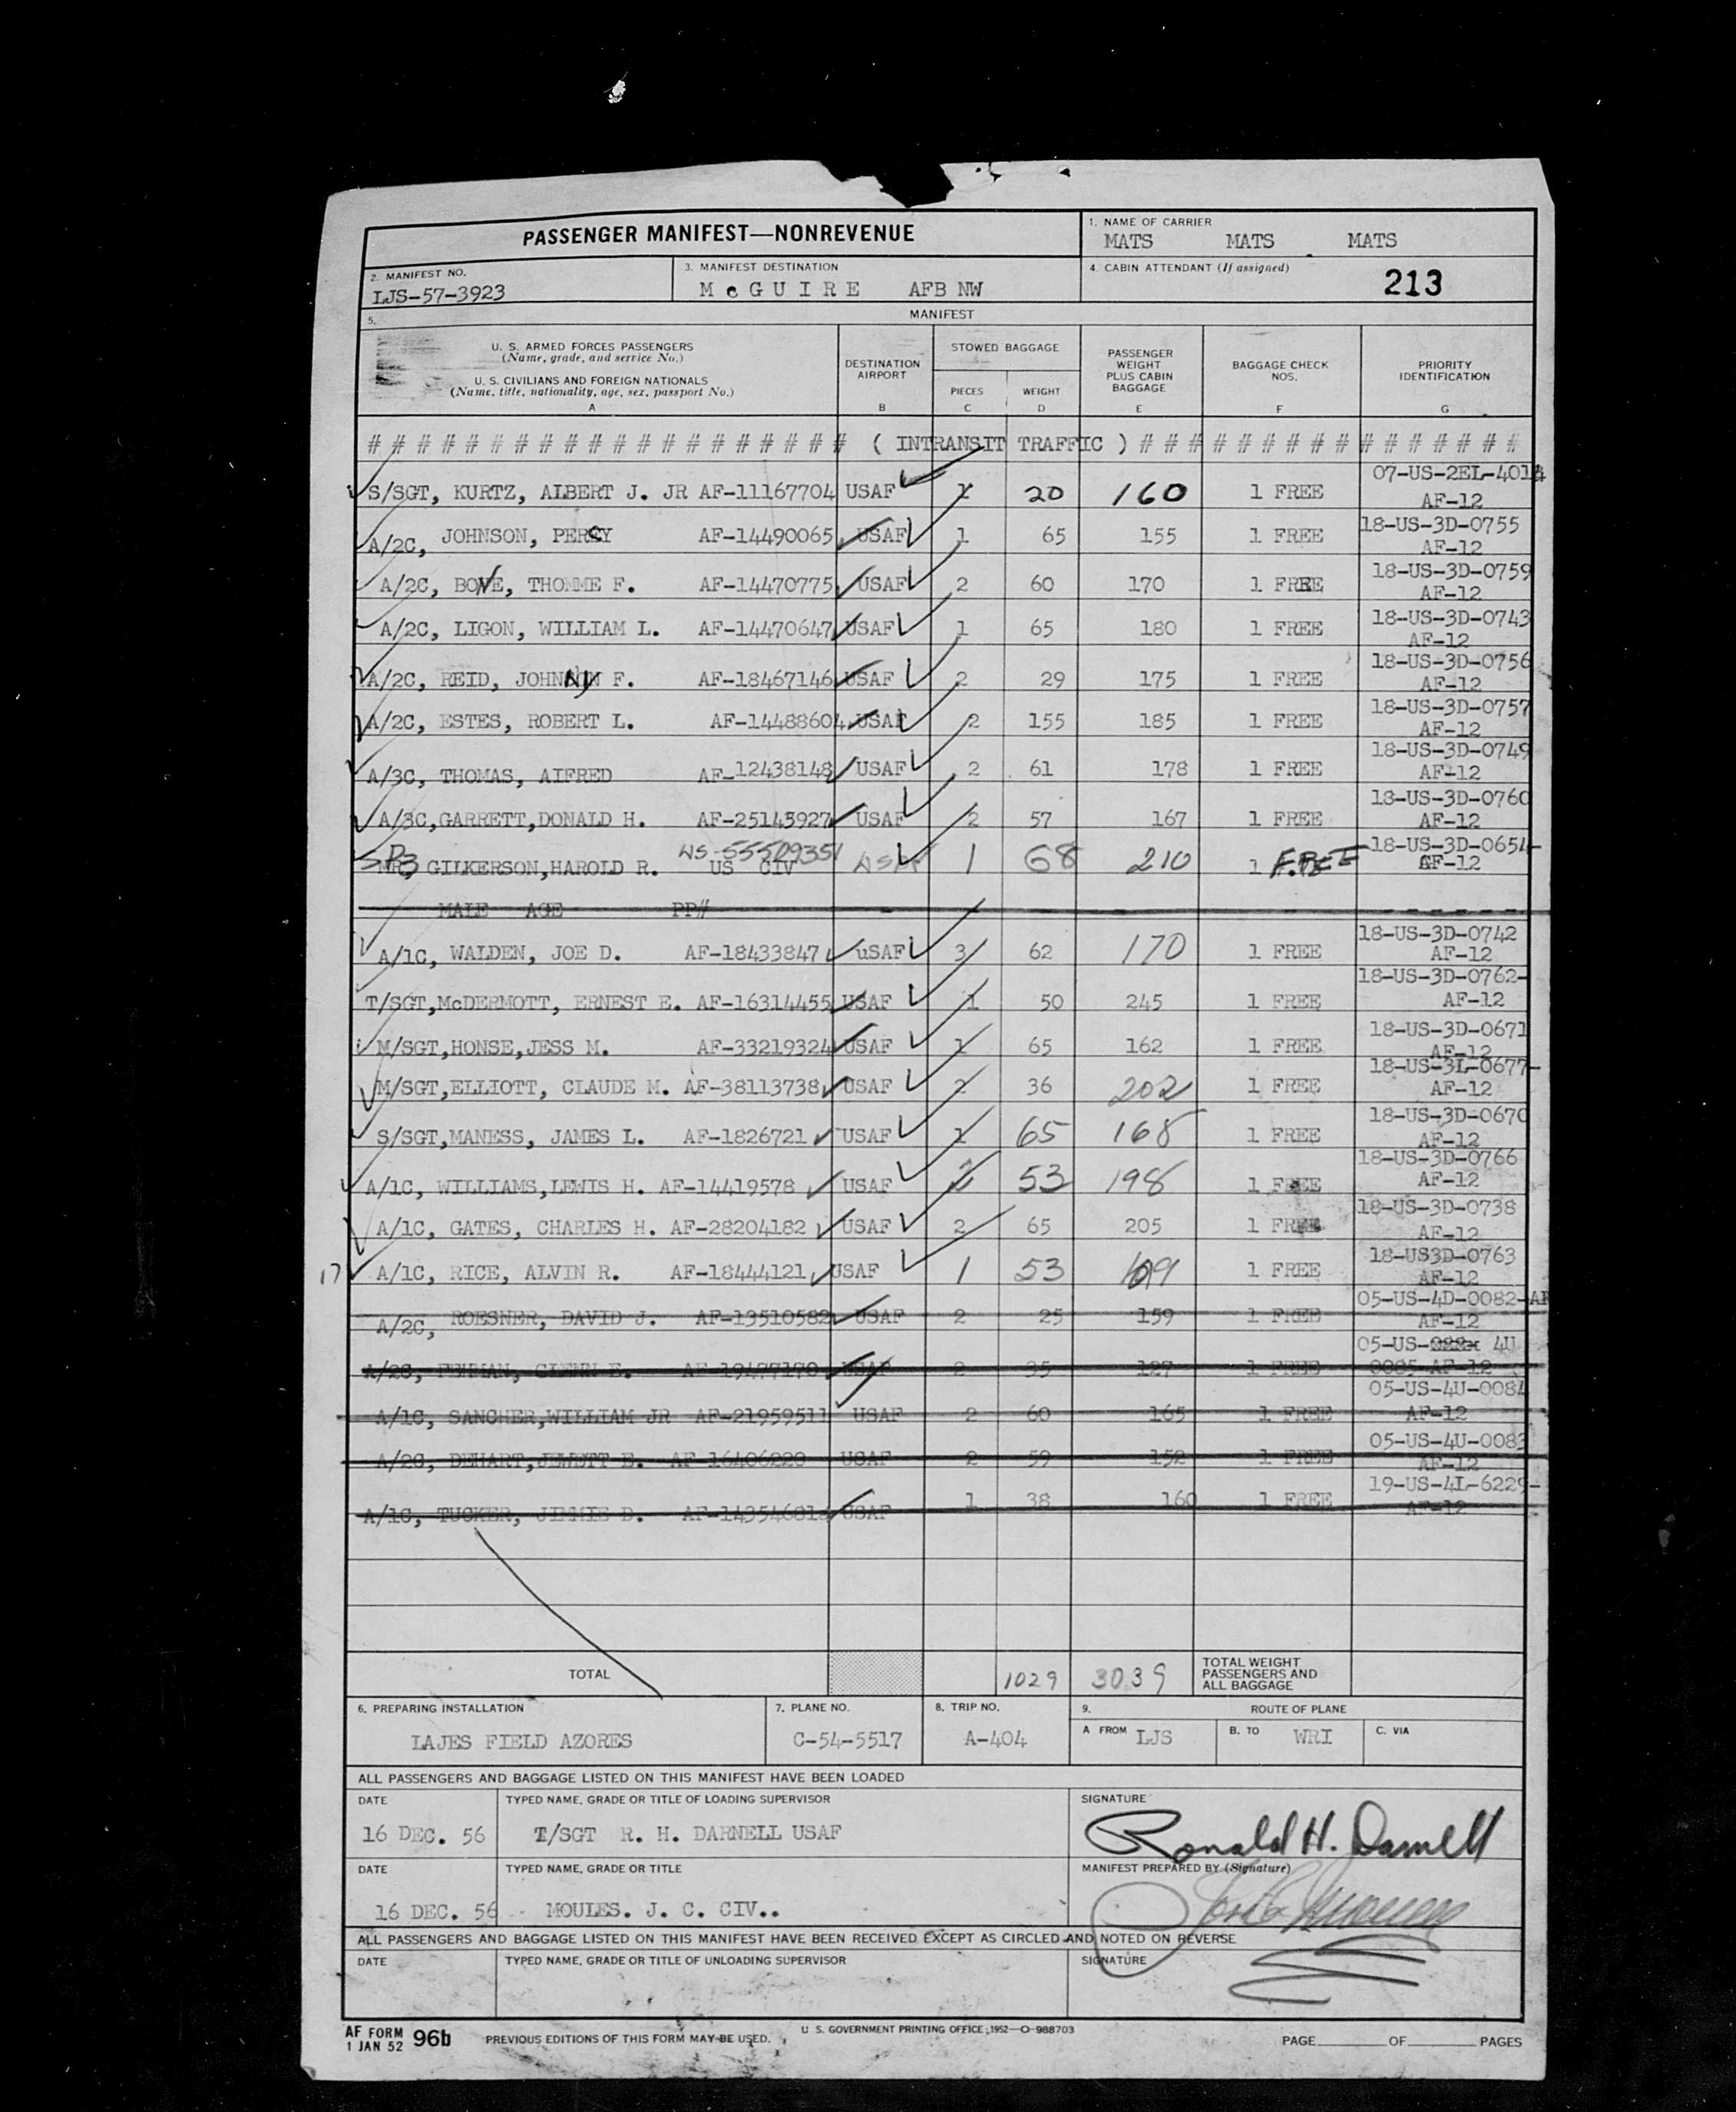 PASSENGER MANIFEST—NONREVENUE
1. NAME OF CARRIER
MATS MATS MATS
2. MANIFEST NO.
LJS-57-3923
3. MANIFEST DESTINATION
McGUIRE AFB NW
4. CABIN ATTENDANT (If assigned)
213
5.
MANIFEST
U. S. ARMED FORCES PASSENGERS
(Name, grade, and service No.)
U. S. CIVILIANS AND FOREIGN NATIONALS
(Name, title, nationality, age, sex, passport No.)
A
DESTINATION
AIRPORT
B
STOWED BAGGAGE
PIECES
C
WEIGHT
D
PASSENGER
WEIGHT
PLUS CABIN
BAGGAGE
E
BAGGAGE CHECK
NOS.
F
PRIORITY
IDENTIFICATION
G
# # # # # # # # # # # # # # # # # # # # ( INTRANSIT TRAFFIC ) # # # # # # # # # # # # # # # #
07-US-2EL-4014
S/SGT, KURTZ, ALBERT J. JR AF-11167704 USAF 1 20 160 1 FREE AF-12
18-US-3D-0755
A/2C, JOHNSON, PERCY AF-14490065 USAF 1 65 155 1 FREE AF-12
18-US-3D-0759
A/2C, BOWE, THOMME F. AF-14470775 USAF 2 60 170 1 FREE AF-12
18-US-3D-0743
A/2C, LIGON, WILLIAM L. AF-14470647 USAF 1 65 180 1 FREE AF-12
18-US-3D-0756
A/2C, REID, JOHNNY F. AF-18467146 USAF 2 29 175 1 FREE AF-12
18-US-3D-0757
A/2C, ESTES, ROBERT L. AF-14488604 USAF 2 155 185 1 FREE AF-12
18-US-3D-0749
A/3C, THOMAS, AIFRED AF-12438148 USAF 2 61 178 1 FREE AF-12
18-US-3D-0760
A/3C, GARRETT, DONALD H. AF-25145927 USAF 2 57 167 1 FREE AF-12
US-55509351 18-US-3D-0654-
P3 GILKERSON, HAROLD R. US CIV USAF 1 68 210 1 FREE AF-12
MALE AGE PP#
18-US-3D-0742
A/1C, WALDEN, JOE D. AF-18433847 uSAF 3 62 170 1 FREE AF-12
18-US-3D-0762-
T/SGT, McDERMOTT, ERNEST E. AF-16314455 USAF 1 50 245 1 FREE AF-12
18-US-3D-0671
M/SGT, HONSE, JESS M. AF-33219324 USAF 1 65 162 1 FREE AF-12
18-US-3L-0677-
M/SGT, ELLIOTT, CLAUDE M. AF-38113738 USAF 2 36 202 1 FREE AF-12
18-US-3D-0670
S/SGT, MANESS, JAMES L. AF-1826721 USAF 1 65 168 1 FREE AF-12
18-US-3D-0766
A/1C, WILLIAMS, LEWIS H. AF-14419578 USAF 2 53 198 1 FREE AF-12
18-US-3D-0738
A/1C, GATES, CHARLES H. AF-28204182 USAF 2 65 205 1 FREE AF-12
18-US3D-0763
17 A/1C, RICE, ALVIN R. AF-18444121 USAF 1 53 1 FREE AF-12
05-US-4D-0082-AF
A/2C, ROESNER, DAVID J. AF-13510582 USAF 2 25 159 1 FREE AF-12
05-US- 4U
A/2C, PENMAN, GLENN E. AF-19477170 USAF 2 35 127 1 FREE 0085 AF-12
05-US-4U-0084
A/1C, SANCHER, WILLIAM JR AF-21959511 USAF 2 60 165 1 FREE AF-12
05-US-4U-0083
A/2C, DEHART, JEWETT E. AF-16406220 USAF 2 59 152 1 FREE AF-12
19-US-4L-6229-
A/1C, TUCKER, JIMMIE D. AF-14354681 USAF 1 38 160 1 FREE AF-12
TOTAL 1029 3039 TOTAL WEIGHT
PASSENGERS AND
ALL BAGGAGE
6. PREPARING INSTALLATION
LAJES FIELD AZORES
7. PLANE NO.
C-54-5517
8. TRIP NO.
A-404
9. ROUTE OF PLANE
A FROM LJS
B. TO WRI
C. VIA
ALL PASSENGERS AND BAGGAGE LISTED ON THIS MANIFEST HAVE BEEN LOADED
DATE
16 DEC. 56
TYPED NAME, GRADE OR TITLE OF LOADING SUPERVISOR
T/SGT R. H. DARNELL USAF
SIGNATURE
Ronald H. Darnell
DATE
16 DEC. 56
TYPED NAME, GRADE OR TITLE
MOULES. J. C. CIV..
MANIFEST PREPARED BY (Signature)
ALL PASSENGERS AND BAGGAGE LISTED ON THIS MANIFEST HAVE BEEN RECEIVED EXCEPT AS CIRCLED AND NOTED ON REVERSE
DATE
TYPED NAME, GRADE OR TITLE OF UNLOADING SUPERVISOR
SIGNATURE
AF FORM
1 JAN 52 96b
PREVIOUS EDITIONS OF THIS FORM MAY BE USED.
U. S. GOVERNMENT PRINTING OFFICE; 1952—O-988703
PAGE OF PAGES